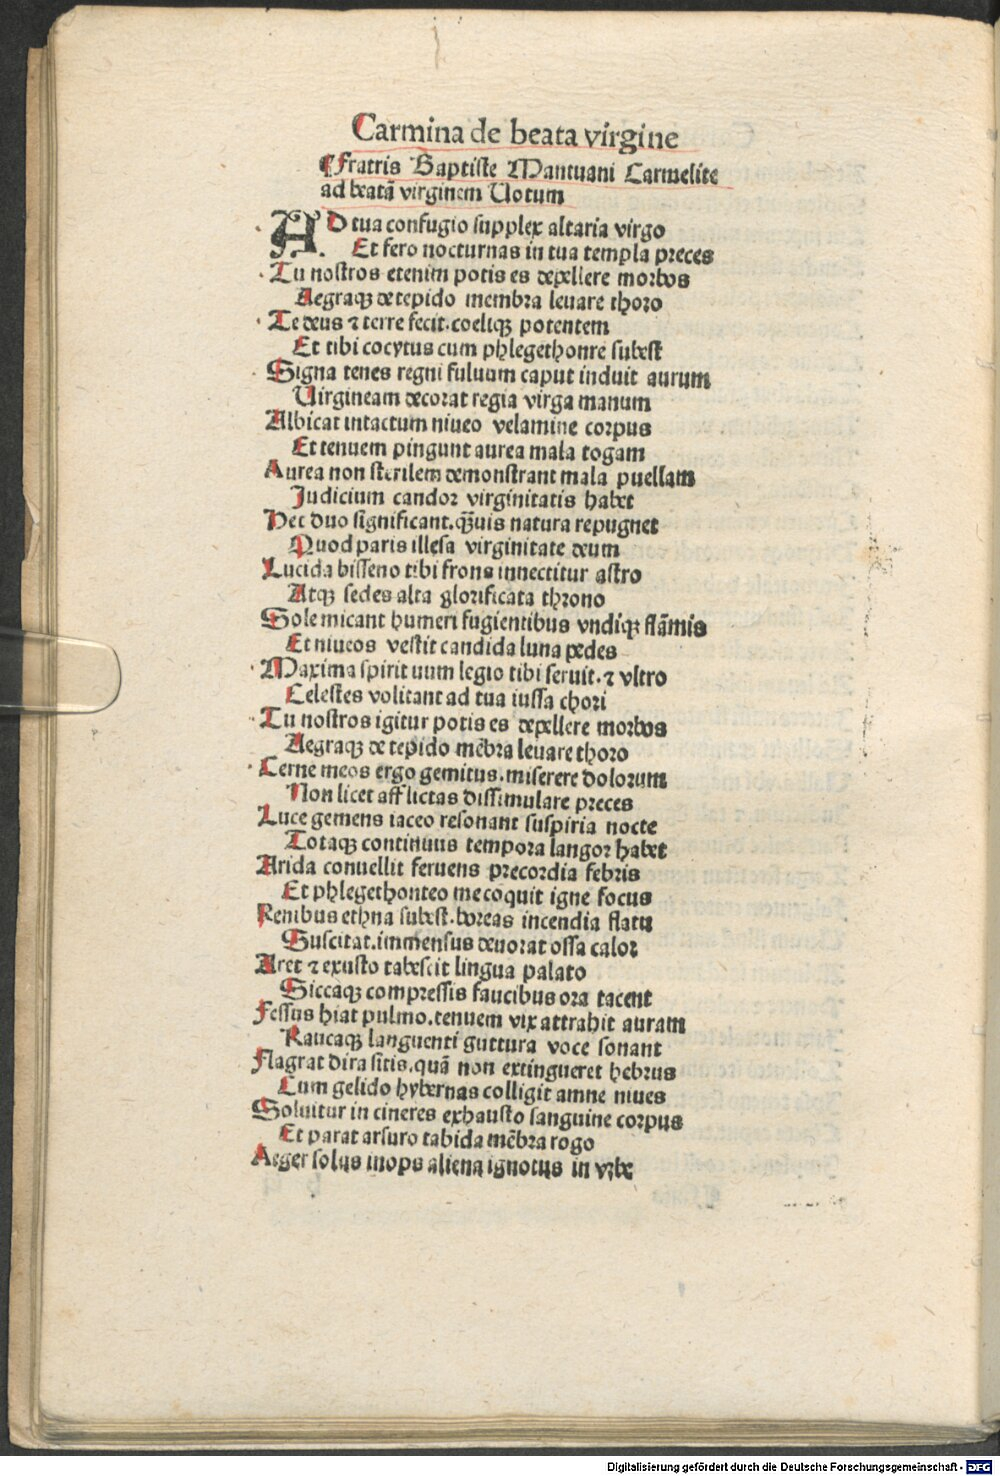 Carmina de beata virgine
¶Fratris Baptiste Mantuani Carmelite
ad beatā virginem Votum
AD tua confugio supplex altaria virgo
Et fero nocturnas in tua templa preces
Tu nostros etenim potis es depellere morbos
Aegraqȝ de tepido membra leuare thoro
Te deus ⁊ terre fecit.coeliqȝ potentem
Et tibi cocytus cum phlegethonre subest
Signa tenes regni fuluum caput induit aurum
Uirgineam decorat regia virga manum
Albicat intactum niueo velamine corpus
Et tenuem pingunt aurea mala togam
Aurea non sterilem demonstrant mala puellam
Judicium candor virginitatis habet
Hec duo significant.q̄uis natura repugnet
Quod paris illesa virginitate deum
Lucida bisseno tibi frons innectitur astro
Atqȝ sedes alta glorificata throno
Sole micant humeri fugientibus vndiqȝ flāmis
Et niueos vestit candida luna pedes
Maxima spirit uum legio tibi seruit.⁊ vltro
Celestes volitant ad tua iussa chori
Tu nostros igitur potis es depellere morbos
Aegraqȝ de tepido mēbra leuare thoro
Cerne meos ergo gemitus.miserere dolorum
Non licet afflictas dissimulare preces
Luce gemens iaceo resonant suspiria nocte
Totaqȝ continuus tempora langor habet
Arida conuellit feruens precordia febris
Et phlegethonteo me coquit igne focus
Renibus ethna subest.boreas incendia flatu
Suscitat.immensus deuorat ossa calor
Aret ⁊ exusto tabescit lingua palato
Siccaqȝ compressis faucibus ora tacent
Fessus hiat pulmo.tenuem vix attrahit auram
Raucaqȝ languenti guttura voce sonant
Flagrat dira sitis.quā non extingueret hebrus
Cum gelido hybernas colligit amne niues
Soluitur in cineres exhausto sanguine corpus
Et parat arsuro tabida mēbra rogo
Aeger solus inops aliena ignotus in vrbe
Digitalisierung gefördert durch die Deutsche Forschungsgemeinschaft - DFG